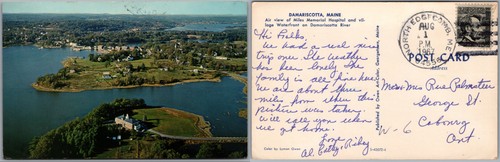 DAMARISCOTTA, MAINE
Air view of Miles Memorial Hospital and vil-
lage Waterfront on Damariscotta River
Hi Folks,
We had a real nice
trip over. The weather
has been lovely. The
family is all fine here.
We are about three
miles from where this
picture was taken
Will call you when
we get home.
Love
Al, Patty, Ricky
Color by Luther Crown
NORTH EDGECOMB, ME.
AUG
1
PM
1967
POST CARD
Mr & Mrs Rue Palmateer
George St
Cobourg
Ont.